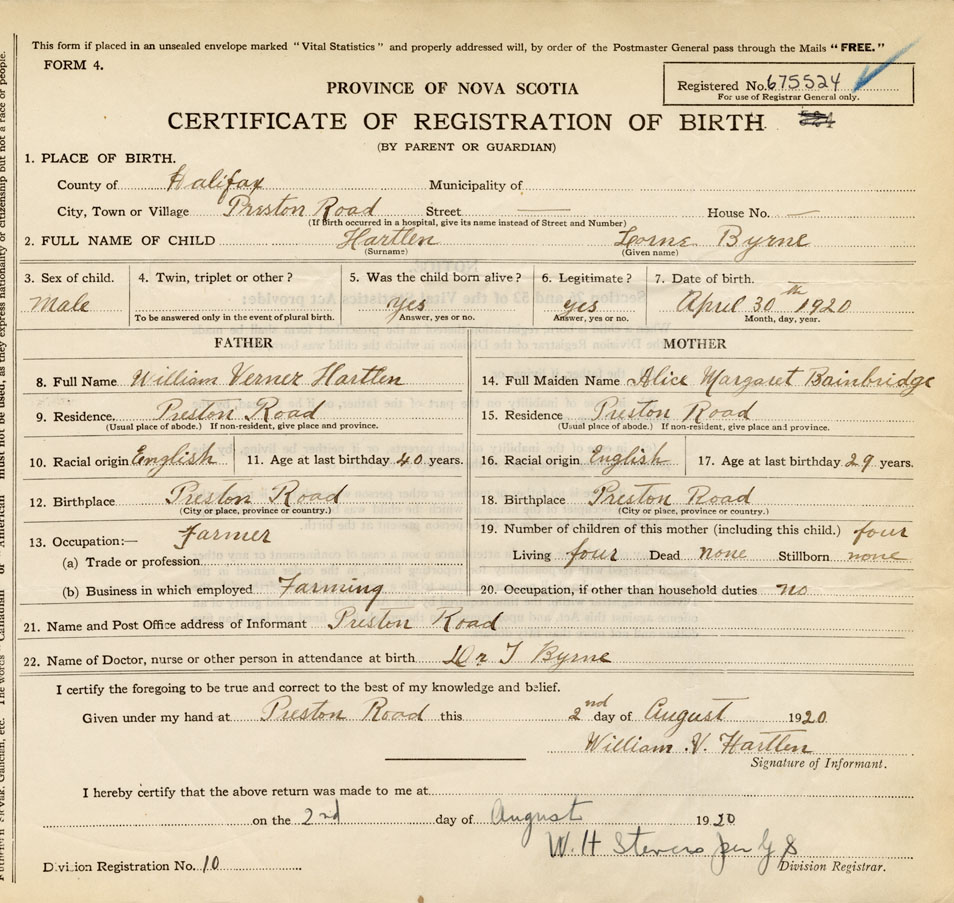 This form if placed in an unsealed envelope marked "Vital Statistics" and properly addressed will, by order of the Postmaster General pass through the Mails "FREE."
FORM 4.
Registered No. 675524
For use of Registrar General only.
PROVINCE OF NOVA SCOTIA
CERTIFICATE OF REGISTRATION OF BIRTH
(BY PARENT OR GUARDIAN)
1. PLACE OF BIRTH.
County of Halifax Municipality of
City, Town or Village Preston Road Street — House No. —
(If birth occurred in a hospital, give its name instead of Street and Number)
2. FULL NAME OF CHILD Hartlen Lorne Byrne
(Surname) (Given name)
3. Sex of child. 4. Twin, triplet or other? 5. Was the child born alive? 6. Legitimate? 7. Date of birth.
Male yes yes April 30th 1920
To be answered only in the event of plural birth. Answer, yes or no. Answer, yes or no. Month, day, year.
FATHER MOTHER
8. Full Name William Verner Hartlen 14. Full Maiden Name Alice Margaret Bainbridge
9. Residence. Preston Road 15. Residence Preston Road
(Usual place of abode.) If non-resident, give place and province. (Usual place of abode.) If non-resident, give place and province.
10. Racial origin English 11. Age at last birthday 40 years. 16. Racial origin English 17. Age at last birthday 29 years.
12. Birthplace Preston Road 18. Birthplace Preston Road
(City or place, province or country.) (City or place, province or country.)
13. Occupation:— Farmer 19. Number of children of this mother (including this child.) four
(a) Trade or profession. Living four Dead none Stillborn none
(b) Business in which employed Farming 20. Occupation, if other than household duties no
21. Name and Post Office address of Informant Preston Road
22. Name of Doctor, nurse or other person in attendance at birth Dr T Byrne
I certify the foregoing to be true and correct to the best of my knowledge and belief.
Given under my hand at Preston Road this 2nd day of August 1920
William V. Hartlen
Signature of Informant.
I hereby certify that the above return was made to me at
on the 2nd day of August 1920
W. H Stevens per G S
Division Registration No. 10 Division Registrar.